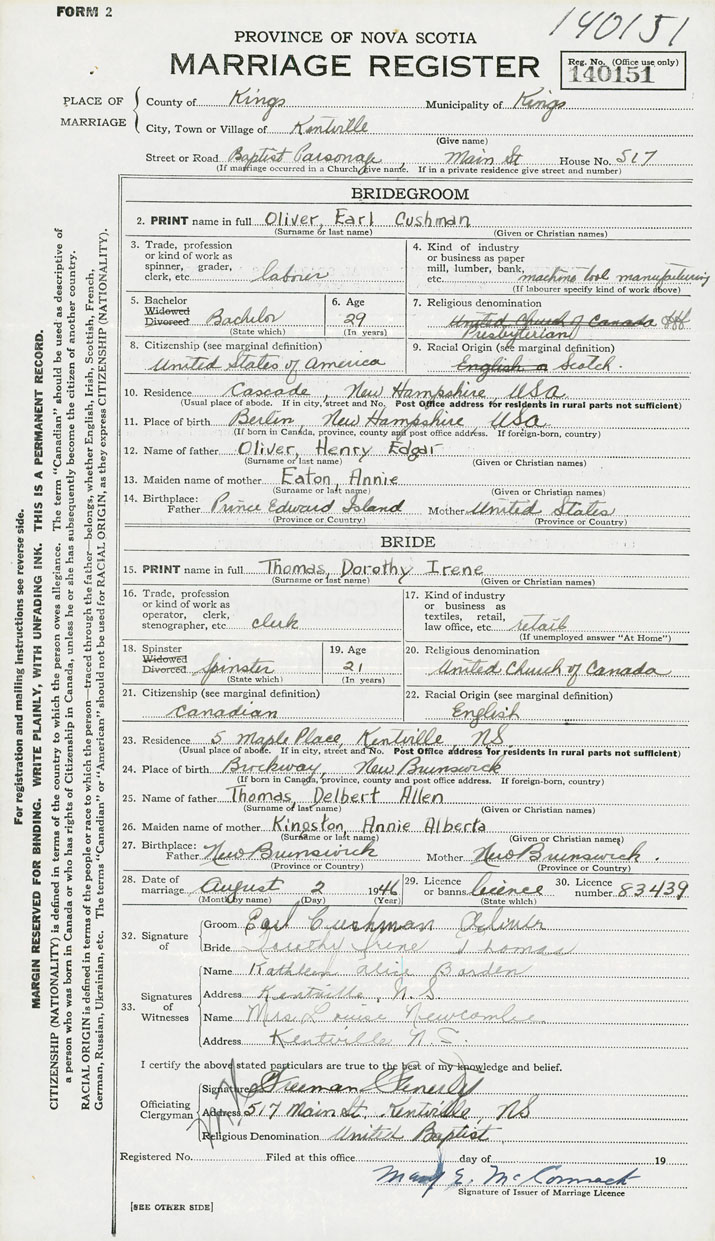 FORM 2
140151
PROVINCE OF NOVA SCOTIA
MARRIAGE REGISTER
Reg. No. (Office use only)
140151
PLACE OF MARRIAGE
County of Kings Municipality of Kings
City, Town or Village of Kentville
(Give name)
Street or Road Baptist Parsonage, Main St House No. 517
(If marriage occurred in a Church give name. If in a private residence give street and number)
BRIDEGROOM
2. PRINT name in full Oliver, Earl Cushman
(Surname or last name) (Given or Christian names)
3. Trade, profession or kind of work as spinner, grader, clerk, etc. labourer
4. Kind of industry or business as paper mill, lumber, bank, etc. machine tool manufacturing
(If labourer specify kind of work above)
5. Bachelor Widowed Divorced Bachelor
(State which)
6. Age 29
(In years)
7. Religious denomination United Church of Canada
Presbyterian
8. Citizenship (see marginal definition)
United States of America
9. Racial Origin (see marginal definition)
English or Scotch.
10. Residence Cascade, New Hampshire, USA
(Usual place of abode. If in city, street and No. Post Office address for residents in rural parts not sufficient)
11. Place of birth Berlin, New Hampshire USA
(If born in Canada, province, county and post office address. If foreign-born, country)
12. Name of father Oliver, Henry Edgar
(Surname or last name) (Given or Christian names)
13. Maiden name of mother Eaton, Annie
(Surname or last name) (Given or Christian names)
14. Birthplace: Father Prince Edward Island Mother United States
(Province or Country) (Province or Country)
BRIDE
15. PRINT name in full Thomas, Dorothy Irene
(Surname or last name) (Given or Christian names)
16. Trade, profession or kind of work as operator, clerk, stenographer, etc clerk
17. Kind of industry or business as textiles, retail, law office, etc. retail
(If unemployed answer "At Home")
18. Spinster Widowed Divorced Spinster
(State which)
19. Age 21
(In years)
20. Religious denomination
United Church of Canada
21. Citizenship (see marginal definition)
Canadian
22. Racial Origin (see marginal definition)
English
23. Residence 5 Maple Place, Kentville, NS.
(Usual place of abode. If in city, street and No. Post Office address for residents in rural parts not sufficient)
24. Place of birth Brockway, New Brunswick
(If born in Canada, province, county and post office address. If foreign-born, country)
25. Name of father Thomas, Delbert Allen
(Surname or last name) (Given or Christian names)
26. Maiden name of mother Kingston, Annie Alberta
(Surname or last name) (Given or Christian names)
27. Birthplace: Father New Brunswick Mother New Brunswick.
(Province or Country) (Province or Country)
28. Date of marriage August 2 1946
(Month by name) (Day) (Year)
29. Licence or banns. licence
(State which)
30. Licence number 83439
32. Signature of
Groom Earl Cushman Oliver
Bride Dorothy Irene Thomas
33. Signatures of Witnesses
Name Kathleen Alice Borden
Address Kentville, N.S.
Name Mrs. Louise Newcombe
Address Kentville N.S.
I certify the above stated particulars are true to the best of my knowledge and belief.
Officiating Clergyman
Signature Freeman Fenerty
Address 517 Main St. Kentville, NS
Religious Denomination United Baptist
Registered No. Filed at this office day of 19
Mary E. McCormack
Signature of Issuer of Marriage Licence
[SEE OTHER SIDE]
For registration and mailing instructions see reverse side.
MARGIN RESERVED FOR BINDING. WRITE PLAINLY, WITH UNFADING INK. THIS IS A PERMANENT RECORD.
CITIZENSHIP (NATIONALITY) is defined in terms of the country to which the person owes allegiance. The term "Canadian" should be used as descriptive of
a person who was born in Canada or who has rights of Citizenship in Canada, unless he or she has subsequently become the citizen of another country.
RACIAL ORIGIN is defined in terms of the people or race to which the person—traced through the father—belongs, whether English, Irish, Scottish, French,
German, Russian, Ukrainian, etc. The terms "Canadian" or "American" should not be used for RACIAL ORIGIN, as they express CITIZENSHIP (NATIONALITY).